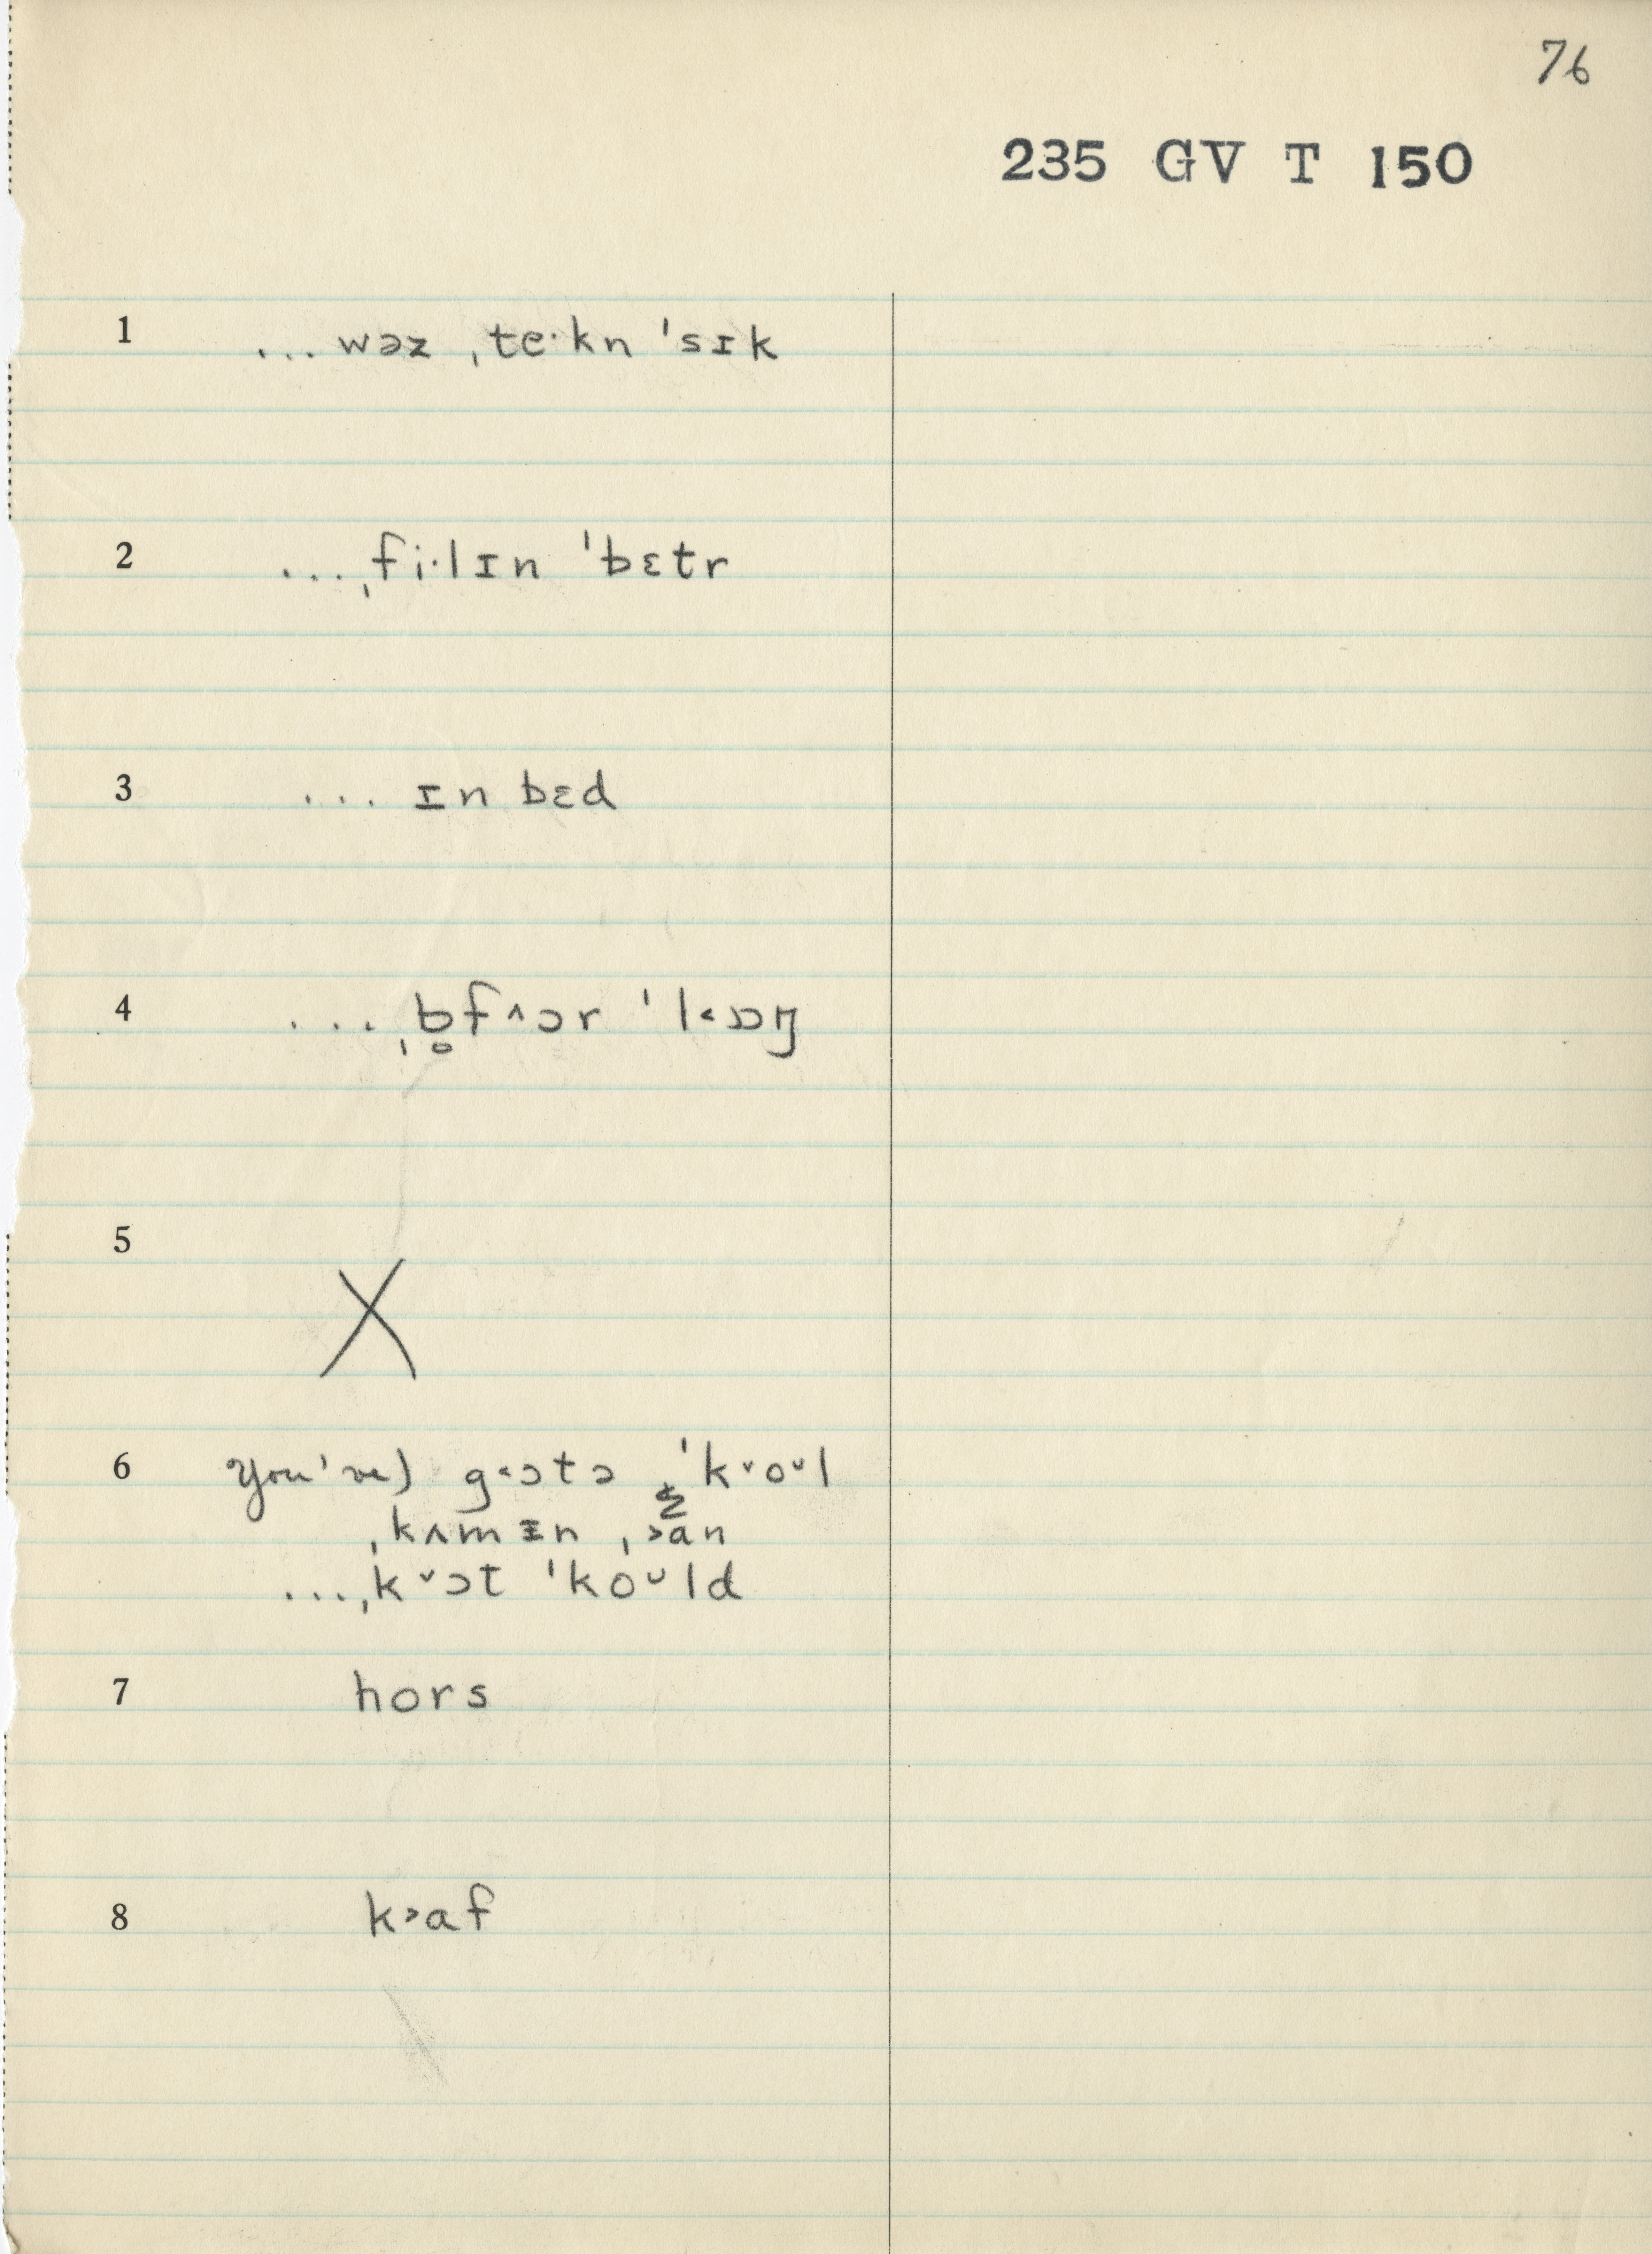 76
235 GV T 150
1 ...wəz ˌte·kn ˈsɪk
2 ...ˌfi·lɪn ˈbɛtr
3 ... ɪn bɛd
4 ...ˌb̥f^ɔr ˈl˂ɒŋ
5 X
6 You've) g˂ɔtə ˈk˅o˅l
ˌkʌmɪn ˌ˃an
...ˌk˅ɔt ˈko˅ld
7 hors
8 k˃af